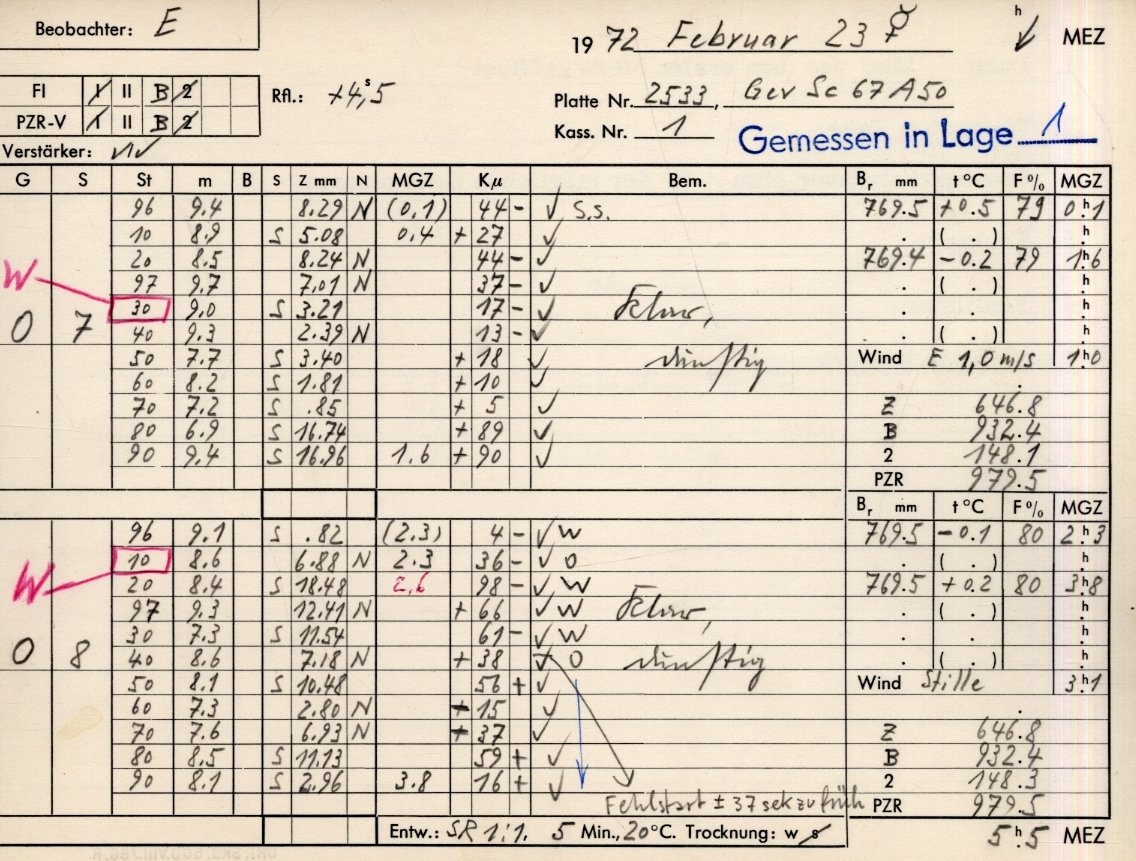 Beobachter: E
1972 Februar 23 ☿ h MEZ
FI I II B 2
PZR-V 1 II B 2
Rfl.: +4,5 s
Platte Nr. 2533, Gev Sc 67 A 50
Kass. Nr. 1 Gemessen in Lage 1
Verstärker:
G S St m B S Z mm N MGZ Kμ Bem. Br mm t°C F% MGZ
96 9.4 8.29 N (0,1) 44 - ✓ S.s. 769.5 +0.5 79 0h.1
10 8.9 S 5.08 0.4 + 27 ✓ . ( . ) h.
20 8.5 8.24 N 44 - ✓ 769.4 -0.2 79 1h.6
W 97 9.7 7.01 N 37 - ✓ . ( . ) h.
30 9.0 S 3.21 17 - ✓ Klar, . . h.
0 7 40 9.3 2.39 N 13 - ✓ . ( . ) h.
50 7.7 S 3.40 + 18 ✓ dunstig Wind E 1,0 m/s 1h.0
60 8.2 S 1.81 + 10 ✓ .
70 7.2 S .85 + 5 ✓ Z 646.8
80 6.9 S 16.74 + 89 ✓ B 932.4
90 9.4 S 16.96 1.6 + 90 ✓ 2 148.1
PZR 979.5
Br mm t°C F% MGZ
96 9.1 S .82 (2.3) 4 - ✓ W 769.5 -0.1 80 2h.3
10 8.6 6.88 N 2.3 36 - ✓ O . ( . ) h.
W 20 8.4 S 18.48 2,6 98 - ✓ W 769.5 +0.2 80 3h.8
97 9.3 12.41 N + 66 ✓ W Klar, . ( . ) h.
30 7.3 S 11.54 61 - ✓ W . . h.
0 8 40 8.6 7.18 N + 38 ✓ O dunstig . ( . ) h.
50 8.1 S 10.48 56 + ✓ Wind Stille 3h.1
60 7.3 2.80 N + 15 ✓ .
70 7.6 6.93 N + 37 ✓ Z 646.8
80 8.5 S 11.13 59 + ✓ B 932.4
90 8.1 S 2.96 3.8 16 + ✓ 2 148.3
Fehlstart ± 37 sek zu früh PZR 979.5
Entw.: SR 1:1. 5 Min., 20°C. Trocknung: w s 5h.5 MEZ